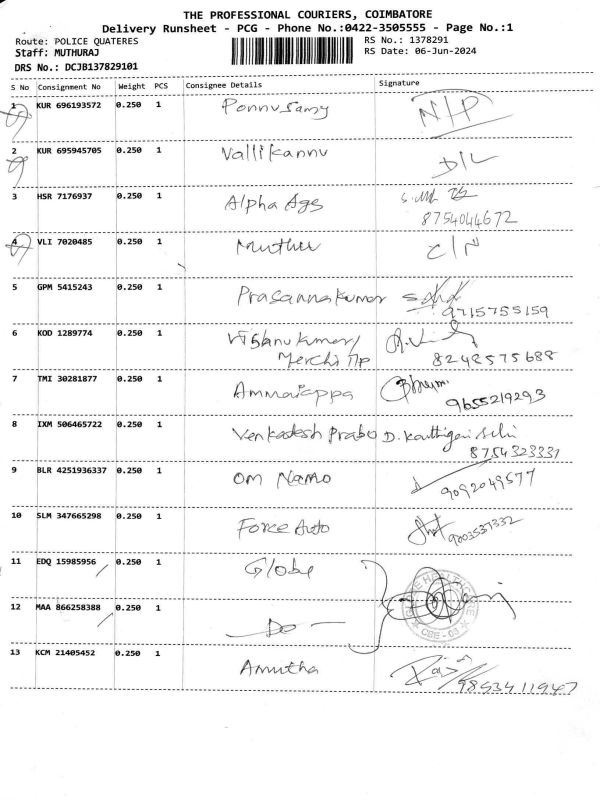 THE PROFESSIONAL COURIERS, COIMBATORE
Delivery Runsheet - PCG - Phone No.:0422-3505555 - Page No.:1
Route: POLICE QUATERES RS No.: 1378291
Staff: MUTHURAJ RS Date: 06-Jun-2024
DRS No.: DCJB137829101
S No Consignment No Weight PCS Consignee Details Signature
1 KUR 696193572 0.250 1 Ponnusamy N/P
2 KUR 695945705 0.250 1 Vallikannu D/L
3 HSR 7176937 0.250 1 Alpha Ags
8754044672
4 VLI 7020485 0.250 1 Muther C/N
5 GPM 5415243 0.250 1 Prasannakumar
9715755159
6 KOD 1289774 0.250 1 Vishnukumar/
Merchi
8248575688
7 TMI 30281877 0.250 1 Ammaiappa
9655219293
8 IXM 506465722 0.250 1 Venkadesh Prabo D. Karthigai Selvi
8754323331
9 BLR 4251936337 0.250 1 OM NAMO
9092049577
10 SLM 347665298 0.250 1 Force Auto
9003537332
11 EDQ 15985956 0.250 1 Globe
12 MAA 866258388 0.250 1 — Do —
HEALTHCARE
CBE - 03
13 KCM 21405452 0.250 1 Amutha